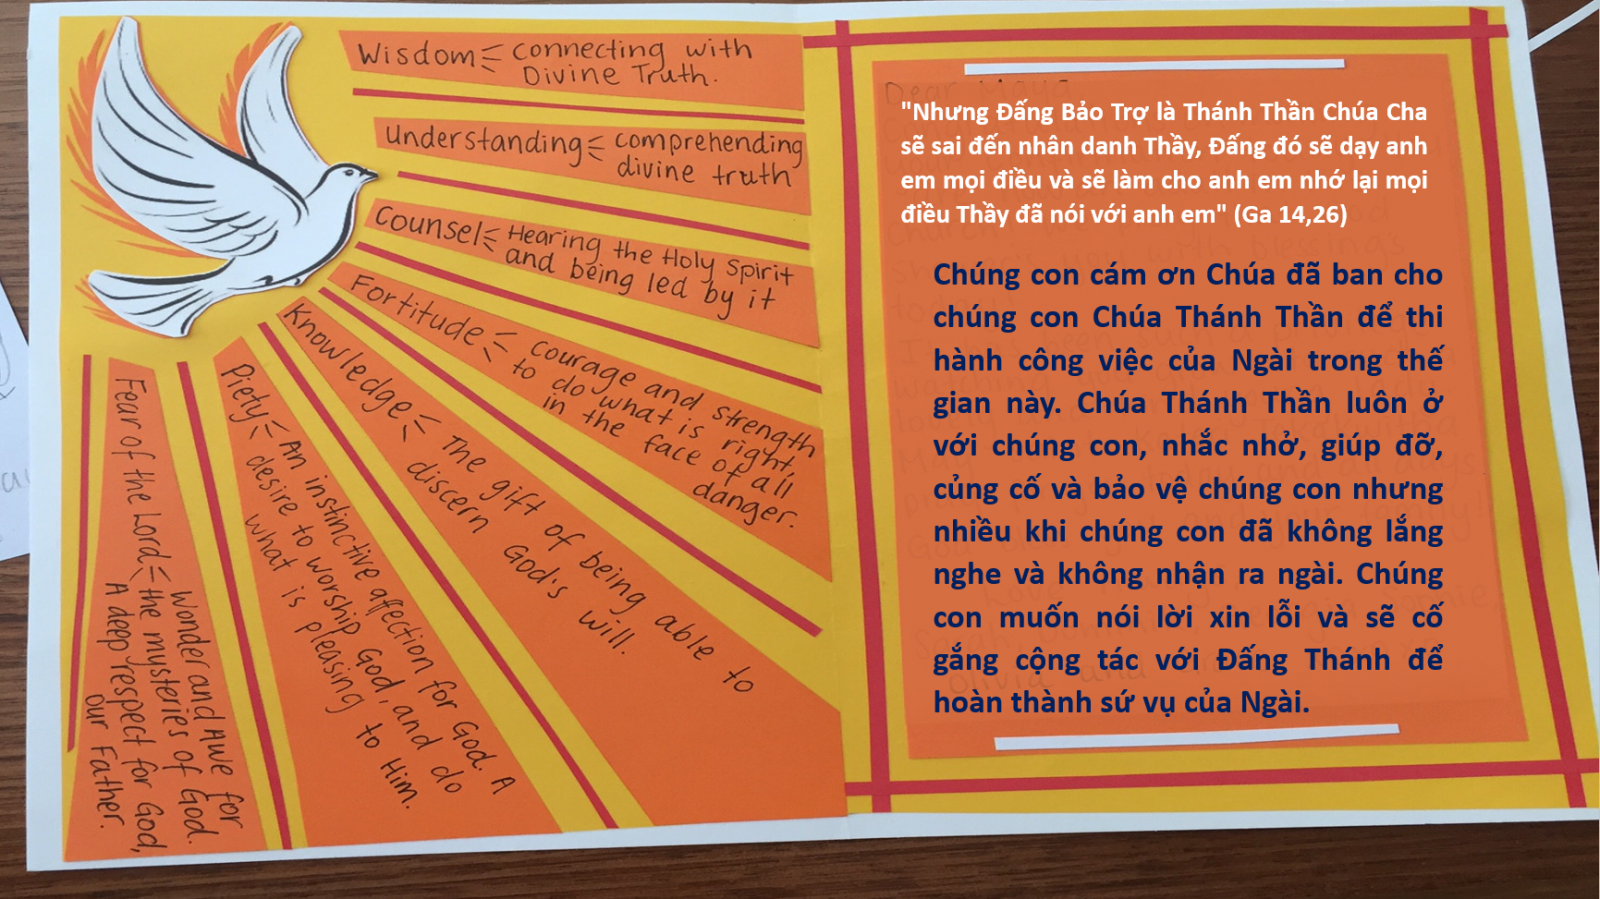 Wisdom
Connecting with
Divine Truth.
Understanding
comprehending
divine truth
Counsel
Hearing the Holy Spirit
and being led by it
Fortitude
courage and strength
to do what is right,
in the face of all
danger.
Knowledge
The gift of being able to
discern God's will.
Piety
An instinctive affection for God. A
desire to worship God, and do
what is pleasing to Him.
Fear of the Lord
Wonder and Awe for
the mysteries of God.
A deep respect for God,
our Father.
Dear Maya
"Nhưng Đấng Bảo Trợ là Thánh Thần Chúa Cha
sẽ sai đến nhân danh Thầy, Đấng đó sẽ dạy anh
em mọi điều và sẽ làm cho anh em nhớ lại mọi
điều Thầy đã nói với anh em" (Ga 14,26)
Chúng con cám ơn Chúa đã ban cho
chúng con Chúa Thánh Thần để thi
hành công việc của Ngài trong thế
gian này. Chúa Thánh Thần luôn ở
với chúng con, nhắc nhở, giúp đỡ,
củng cố và bảo vệ chúng con nhưng
nhiều khi chúng con đã không lắng
nghe và không nhận ra ngài. Chúng
con muốn nói lời xin lỗi và sẽ cố
gắng cộng tác với Đấng Thánh để
hoàn thành sứ vụ của Ngài.